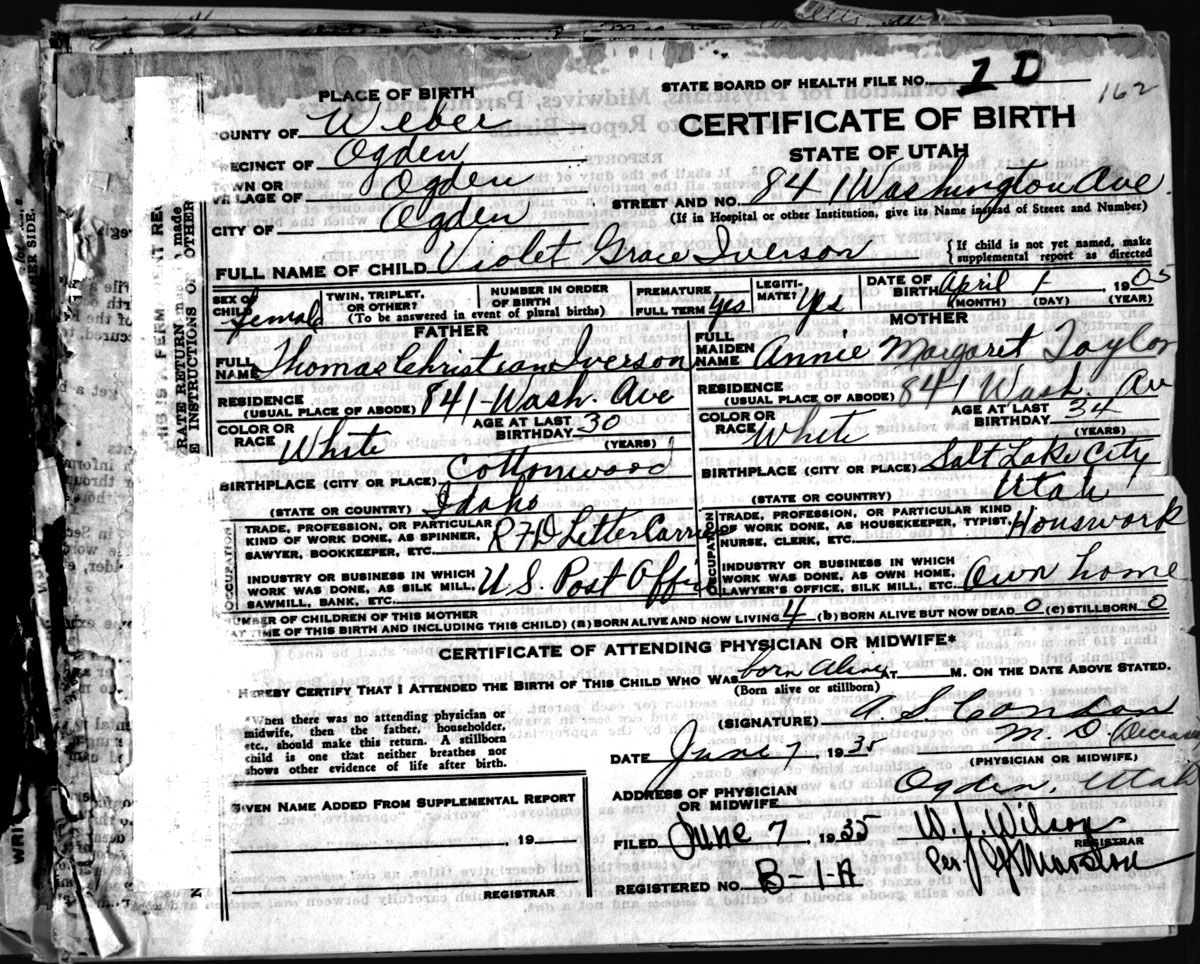 STATE BOARD OF HEALTH FILE NO. 1 D
162
PLACE OF BIRTH
COUNTY OF Weber
CERTIFICATE OF BIRTH
STATE OF UTAH
RECINCT OF Ogden
OWN OR
VILLAGE OF Ogden
STREET AND NO. 841 Washington Ave.
(If in Hospital or other Institution, give its Name instead of Street and Number)
CITY OF Ogden
FULL NAME OF CHILD Violet Grace Iverson
{If child is not yet named, make
supplemental report as directed
SEX OF
CHILD female
TWIN, TRIPLET,
OR OTHER?
NUMBER IN ORDER
OF BIRTH
(To be answered in event of plural births)
PREMATURE
FULL TERM yes
LEGITI-
MATE? Yes
DATE OF
BIRTH April 1 1905
(MONTH) (DAY) (YEAR)
FATHER
FULL
NAME Thomas Christian Iverson
RESIDENCE
(USUAL PLACE OF ABODE) 841-Wash. Ave
COLOR OR
RACE White
AGE AT LAST
BIRTHDAY 30
(YEARS)
BIRTHPLACE (CITY OR PLACE) Cottonwood
(STATE OR COUNTRY) Idaho
OCCUPATION
TRADE, PROFESSION, OR PARTICULAR
KIND OF WORK DONE, AS SPINNER,
SAWYER, BOOKKEEPER, ETC. R F D Letter Carrier
INDUSTRY OR BUSINESS IN WHICH
WORK WAS DONE, AS SILK MILL,
SAWMILL, BANK, ETC. U S. Post Office
MOTHER
FULL
MAIDEN
NAME Annie Margaret Taylor
RESIDENCE
(USUAL PLACE OF ABODE) 841 Wash. Av
COLOR OR
RACE White
AGE AT LAST
BIRTHDAY 34
(YEARS)
BIRTHPLACE (CITY OR PLACE) Salt Lake City
(STATE OR COUNTRY) Utah
OCCUPATION
TRADE, PROFESSION, OR PARTICULAR KIND
OF WORK DONE, AS HOUSEKEEPER, TYPIST,
NURSE, CLERK, ETC. Houswork
INDUSTRY OR BUSINESS IN WHICH
WORK WAS DONE, AS OWN HOME,
LAWYER'S OFFICE, SILK MILL, ETC. Own home
NUMBER OF CHILDREN OF THIS MOTHER
AT TIME OF THIS BIRTH AND INCLUDING THIS CHILD) (a) BORN ALIVE AND NOW LIVING 4 (b) BORN ALIVE BUT NOW DEAD 0 (c) STILLBORN 0
CERTIFICATE OF ATTENDING PHYSICIAN OR MIDWIFE*
HEREBY CERTIFY THAT I ATTENDED THE BIRTH OF THIS CHILD WHO WAS born alive AT M. ON THE DATE ABOVE STATED.
(Born alive or stillborn)
*When there was no attending physician or
midwife, then the father, householder,
etc., should make this return. A stillborn
child is one that neither breathes nor
shows other evidence of life after birth.
(SIGNATURE) A. S. Condon
M. D. (Deceased
DATE June 7 1935
(PHYSICIAN OR MIDWIFE)
ADDRESS OF PHYSICIAN
OR MIDWIFE Ogden, Utah
GIVEN NAME ADDED FROM SUPPLEMENTAL REPORT
, 19
REGISTRAR
FILED June 7 1935
W. J. Wilson
REGISTRAR
Per
REGISTERED NO. B-1-A